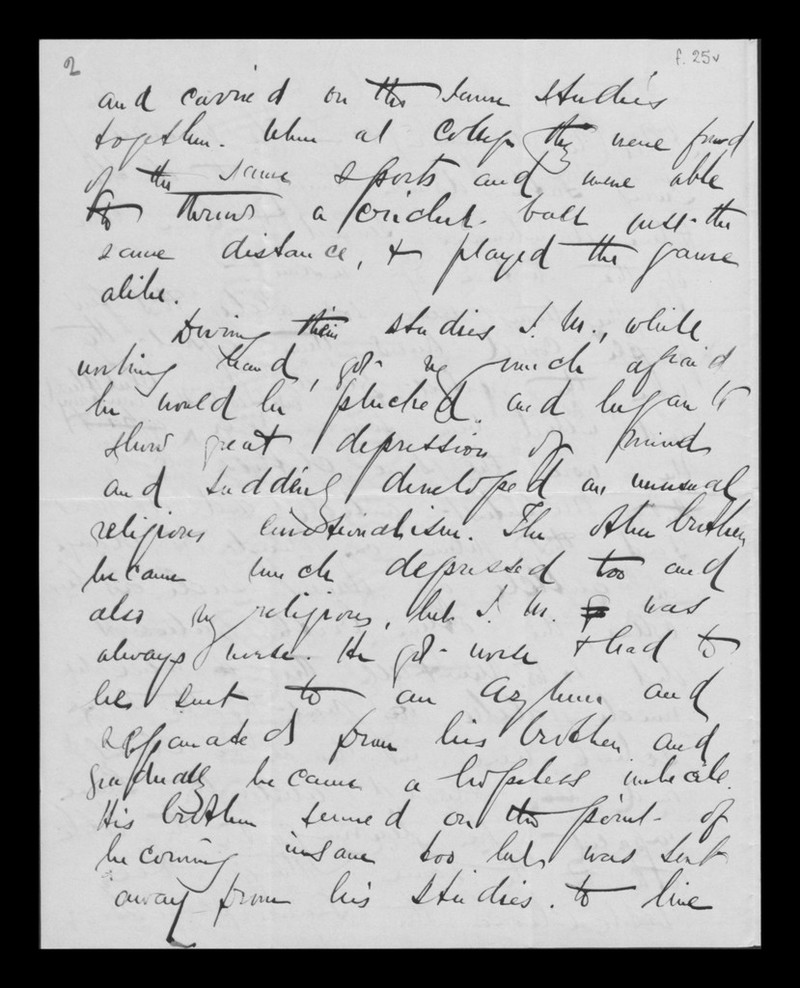 2
f. 25v
and carried on the same studies
together. When at College they were fond
of the same sports and were able
to throw a cricket-ball just the
same distance, & played the game
alike.
During their studies J. M., while
working hard, got very much afraid
he would be plucked and began to
show great depression of mind
and suddenly developed an unusual
religious emotionalism. The other brother
became much depressed too and
also very religious, but J. M. was
always worse. He got worse & had to
be sent to an Asylum and
separated from his brother and
gradually became a hopeless imbecile.
His brother seemed on the point of
becoming insane too but was sent
away from his studies to live